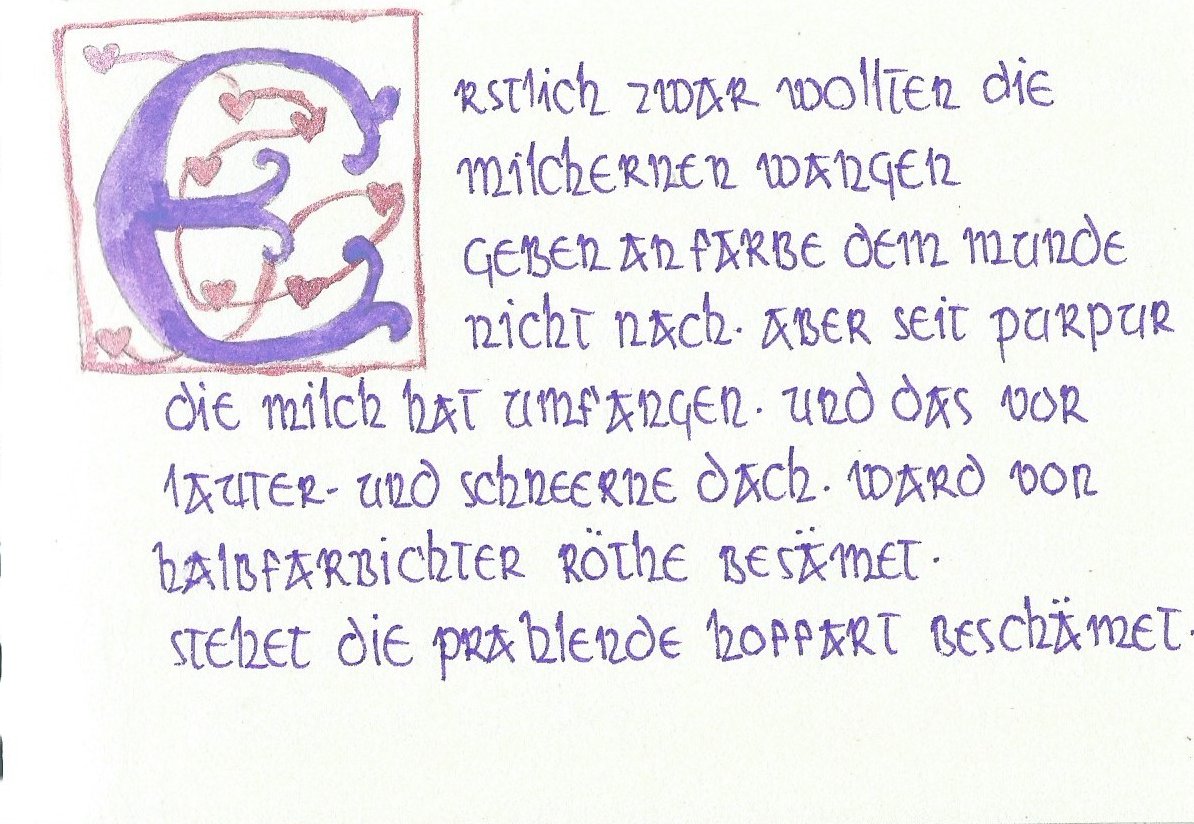 Erstlich zwar wollten die
milchernen wangen
geben an farbe dem munde
nicht nach. aber seit purpur
die milch hat umfangen. und das vor
lauter- und schneerne dach. ward von
halbfarbichter röthe besämet.
stehet die prahlende hoffart beschämet.